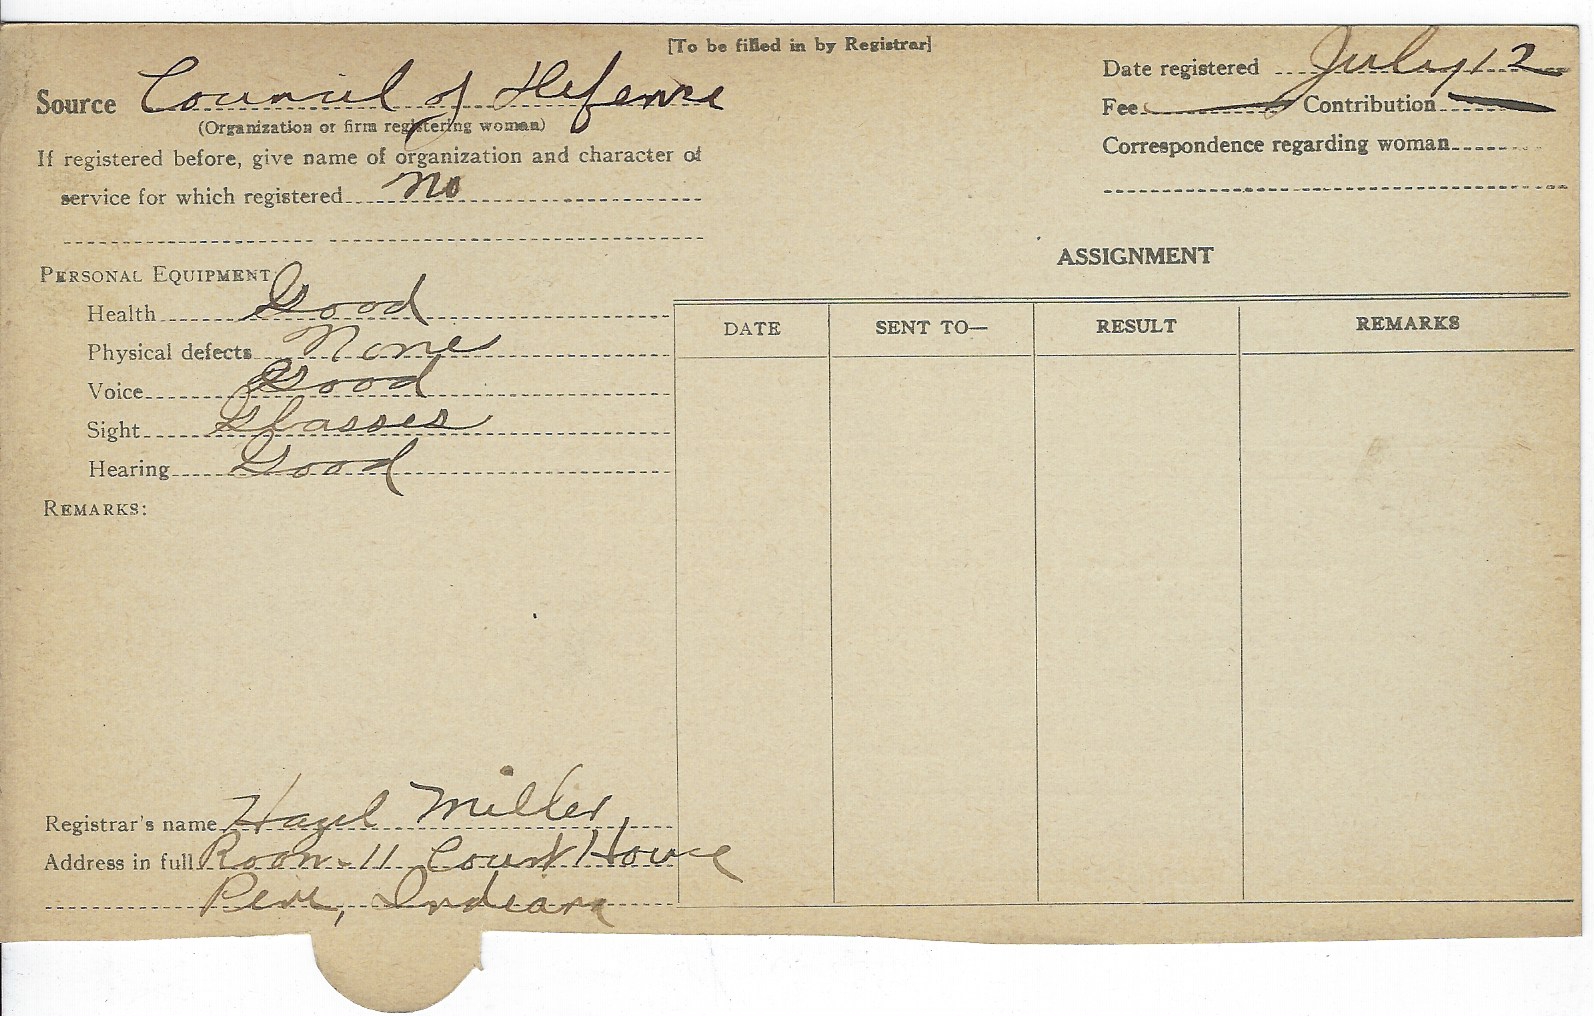 [To be filled in by Registrar]
Source Council of Defense
(Organization or firm registering woman)
If registered before, give name of organization and character of
service for which registered No
Date registered July 12
Fee Contribution
Correspondence regarding woman
PERSONAL EQUIPMENT
Health Good
Physical defects None
Voice Good
Sight Glasses
Hearing Good
REMARKS:
Registrar's name Hazel Miller,
Address in full Room-11 Court House
Peru, Indiana
ASSIGNMENT
DATE SENT TO— RESULT REMARKS